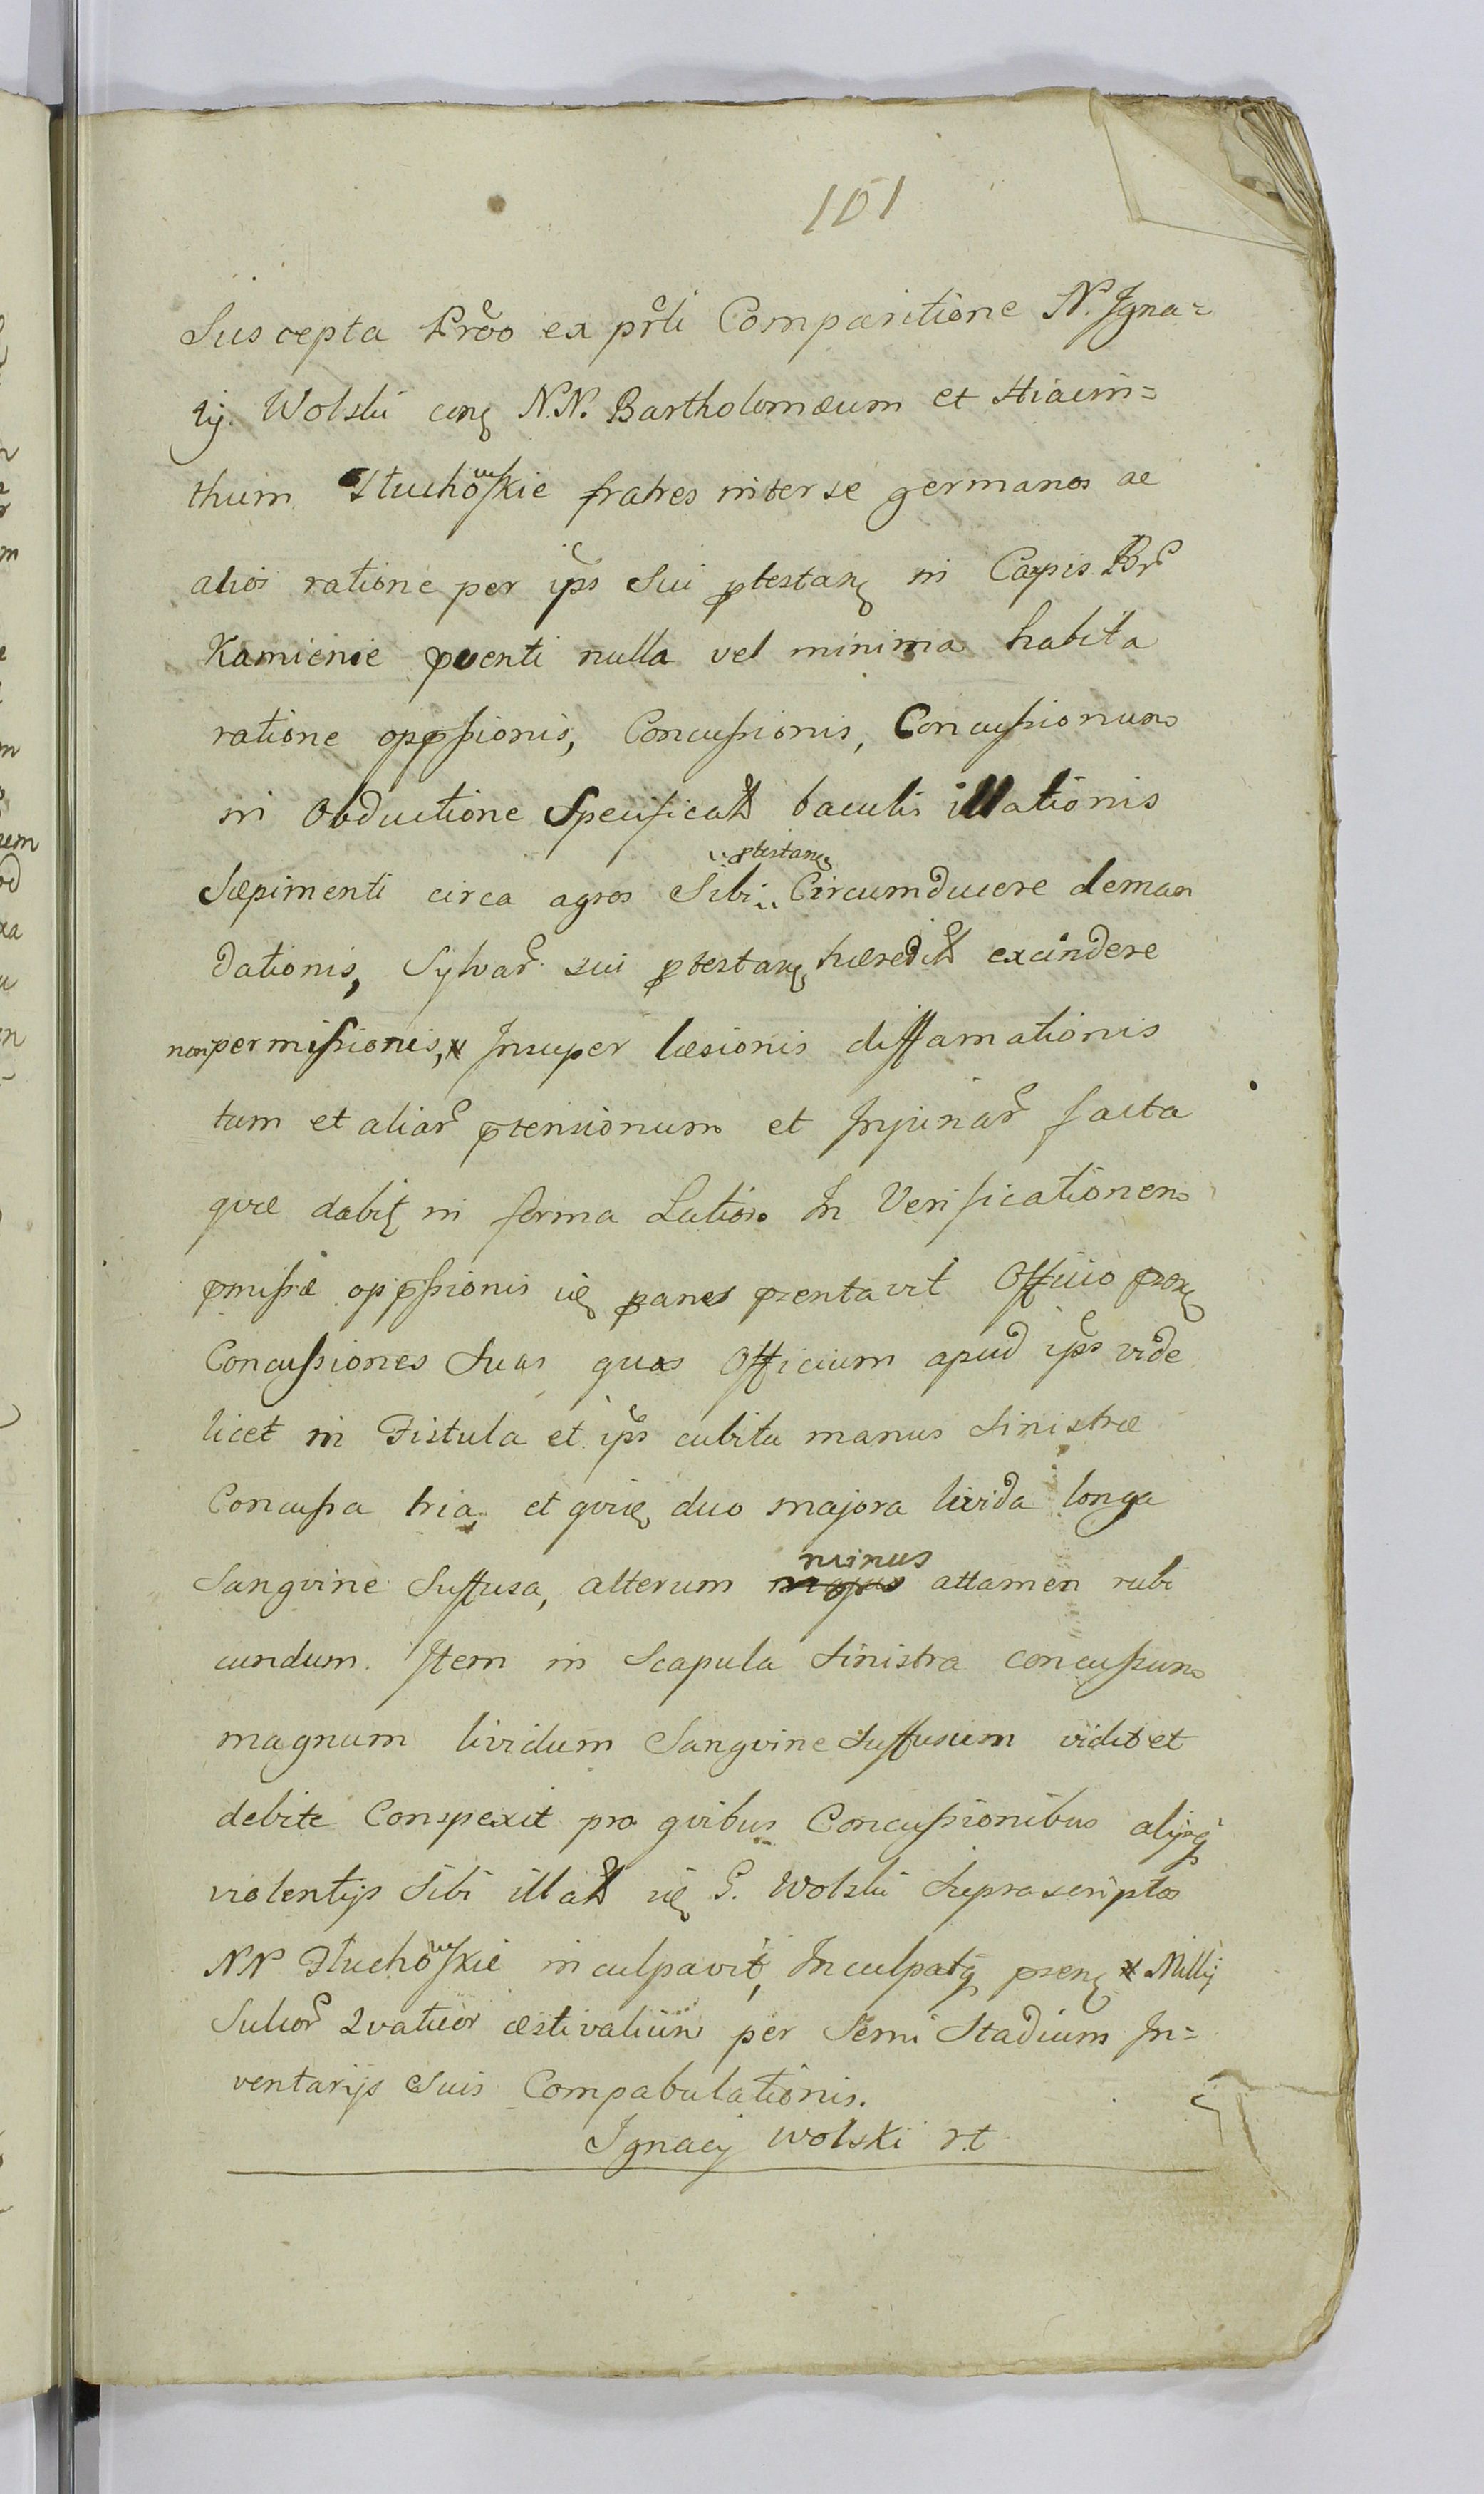 101
Suscepta Prõo ex pr̃ti Comparitione N. Igna=
tij Wolski conq̨ N.N. Bartholomæum et Hiacin=
thum Tłuchowskie fratres inter se germanos ac
alios ratione per ips̃ Sui ptestanę in Carpis Br̃
Kamienie puenti nulla vel minima habita
ratione oppssionis, Concussionis, Concussionum
in Obductione Specificat̃ baculis illationis
Sæpimenti circa agros Sibi ptestanę Circumducere deman
dationis, Sylvar̃ sui ptestanę hæredit̃ excindere
non permissionis, x Insuper læsionis diffamationis
tum et aliar̃ ptensionum et Injuriar̃ facta
qvæ dabit in forma Latiori In Verificationem
pmissæ oppssionis ię panes pzentavit Officio pzenę
Concussiones Suas quas Officium apud ips̃ vide
licet in Fistula et ips̃ cubitu manus Sinistræ
Concussa tria, et qvię duo majora livida longa
Sangvine Suffusa, alterum minus attamen rubi
cundum. Item in Scapula Sinistra concussum
magnum lividum Sangvine Suffusum vidit et
debite Conspexit pro qvibus Concussionibus alijsq̨
violentijs Sibi illat̃ ię G. Wolski Suprascriptos
NN Tłuchowskie inculpavit, Inculpatq̨ pzenę x Millij
Sulcor̃ Qvatuor æstivalium per Semi Stadium In=
ventarijs Suis Compabulationis.
Ignacy Wolski rt